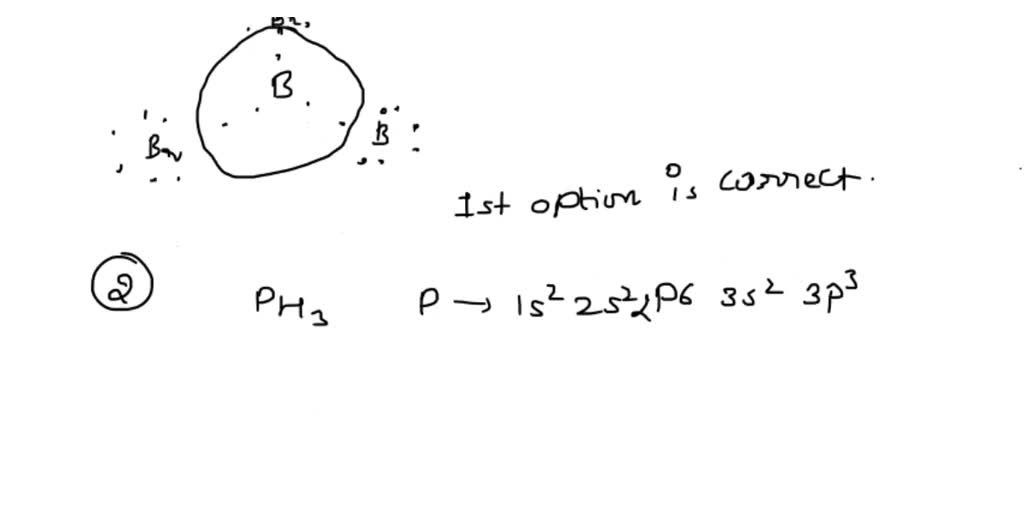 Br
B
Br
B
1st option is correct.
2
PH3 P → 1s² 2s² 2p6 3s² 3p³